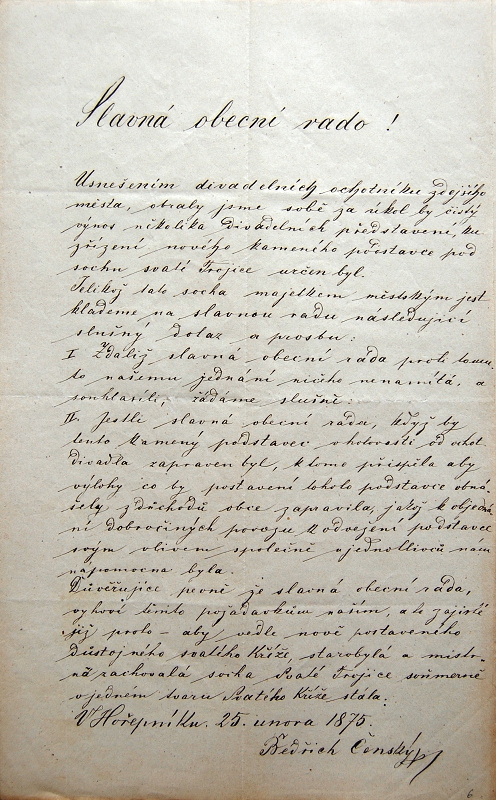 Slavná obecní rado!
Usnešením divadelních ochotníku zdejšího
města, obraly jsme sobě za úkol by čistý
výnos několika Divadelních představení, ku
zřízení nového kameného podstavce pod
sochu svaté Trojice určen byl.
Jelikož tato socha majetkem městským jest
klademe na slavnou radu následující
slušný dotaz a prosbu:
I Zdaliž slavná obecní ráda proti tomu-
to našemu jednání ničeho nenamítá, a
souhlasíli, žádáme slušně:
II. Jestli slavná obecní ráda, když by
tento kamený podstavec v hotovosti od ochot
Divadla zapraven byl, k tome přispěla aby
výlohy co by postavení tohoto podstavce obná-
šely z důchodů obce zapravila, jakož k objedná
ní dobročiných povozu k odvezení podstavce
svým vlivem společně v jednotlivců nám
nápomocna byla.
Důvěřujíce pevně že slavná obecní ráda,
vyhoví těmto požadavkům naším, a to zajisté
již proto – aby vedle nově postaveného
Důstojného svatého Kříže, starobylá a mistr-
ně zachovalá socha Svaté Trojice souměrně
v jedném tvaru Svatého Kříže stála.
V Hořepníku. 25. února 1875.
Bedřich Čenský
6